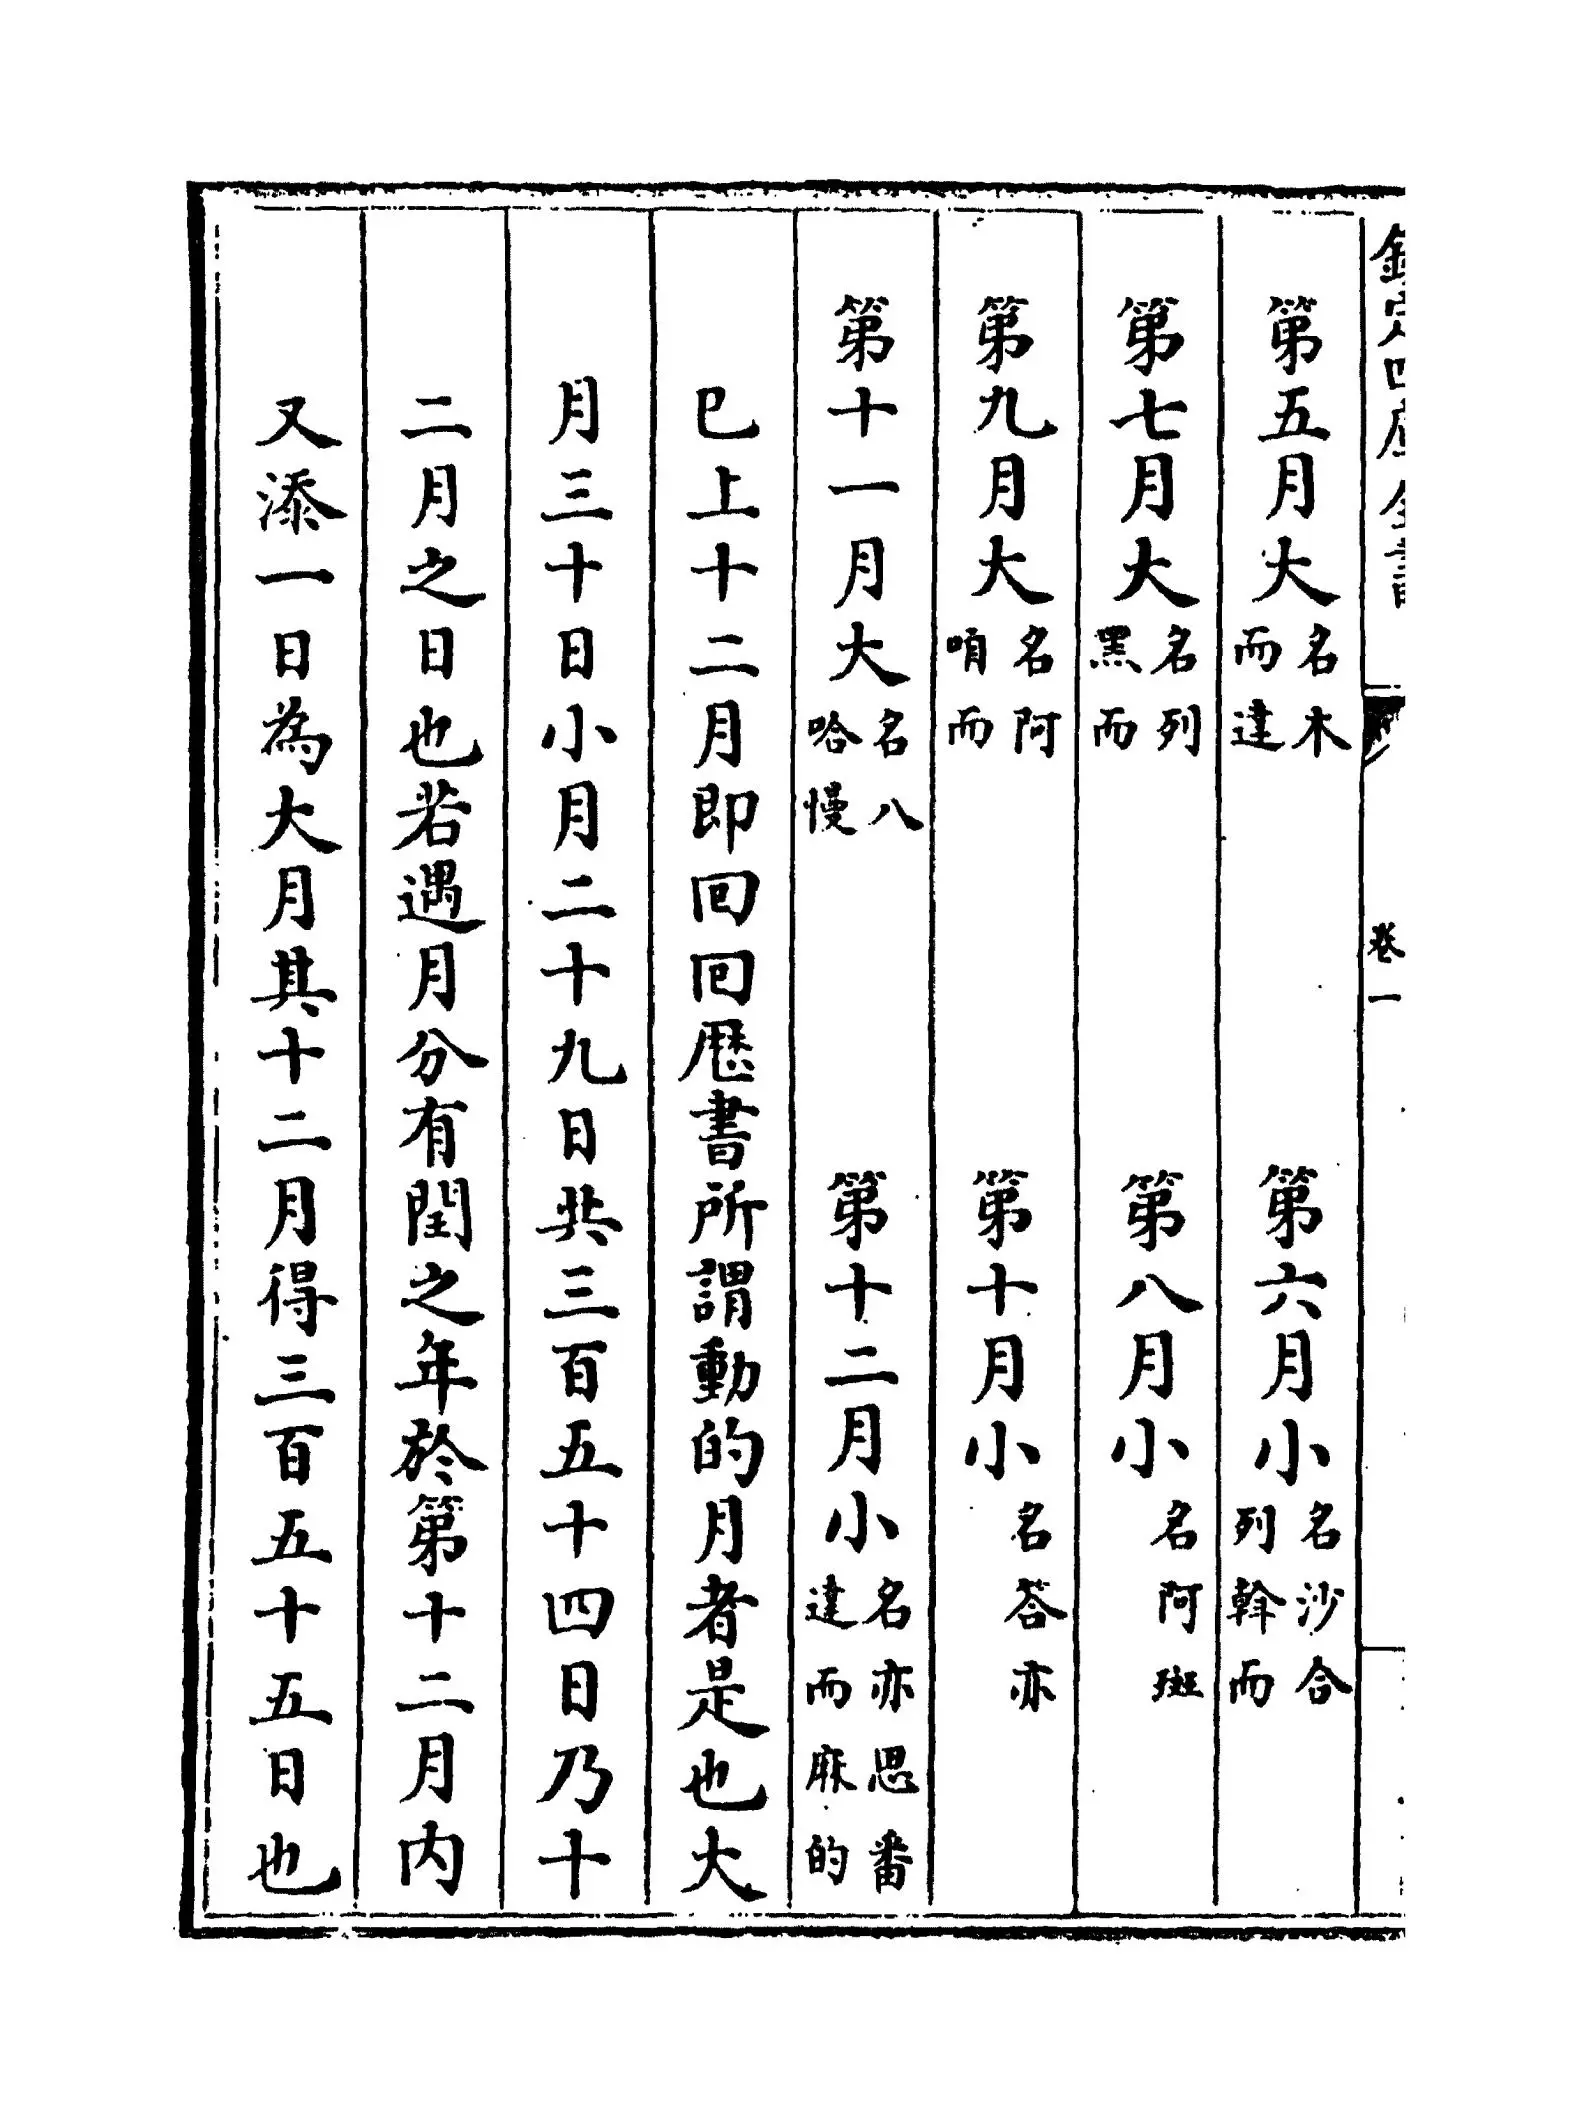 欽定四庫全書
卷一
第五月大名木而達　第六月小名沙合列斡而
第七月大名列黑而　第八月小名阿斑
第九月大名阿咱而　第十月小名答亦
第十一月大名八哈慢　第十二月小名亦思番達而麻的
已上十二月即回回厯書所謂動的月者是也大
月三十日小月二十九日共三百五十四日乃十
二月之日也若遇月分有閏之年於第十二月內
又添一日為大月其十二月得三百五十五日也